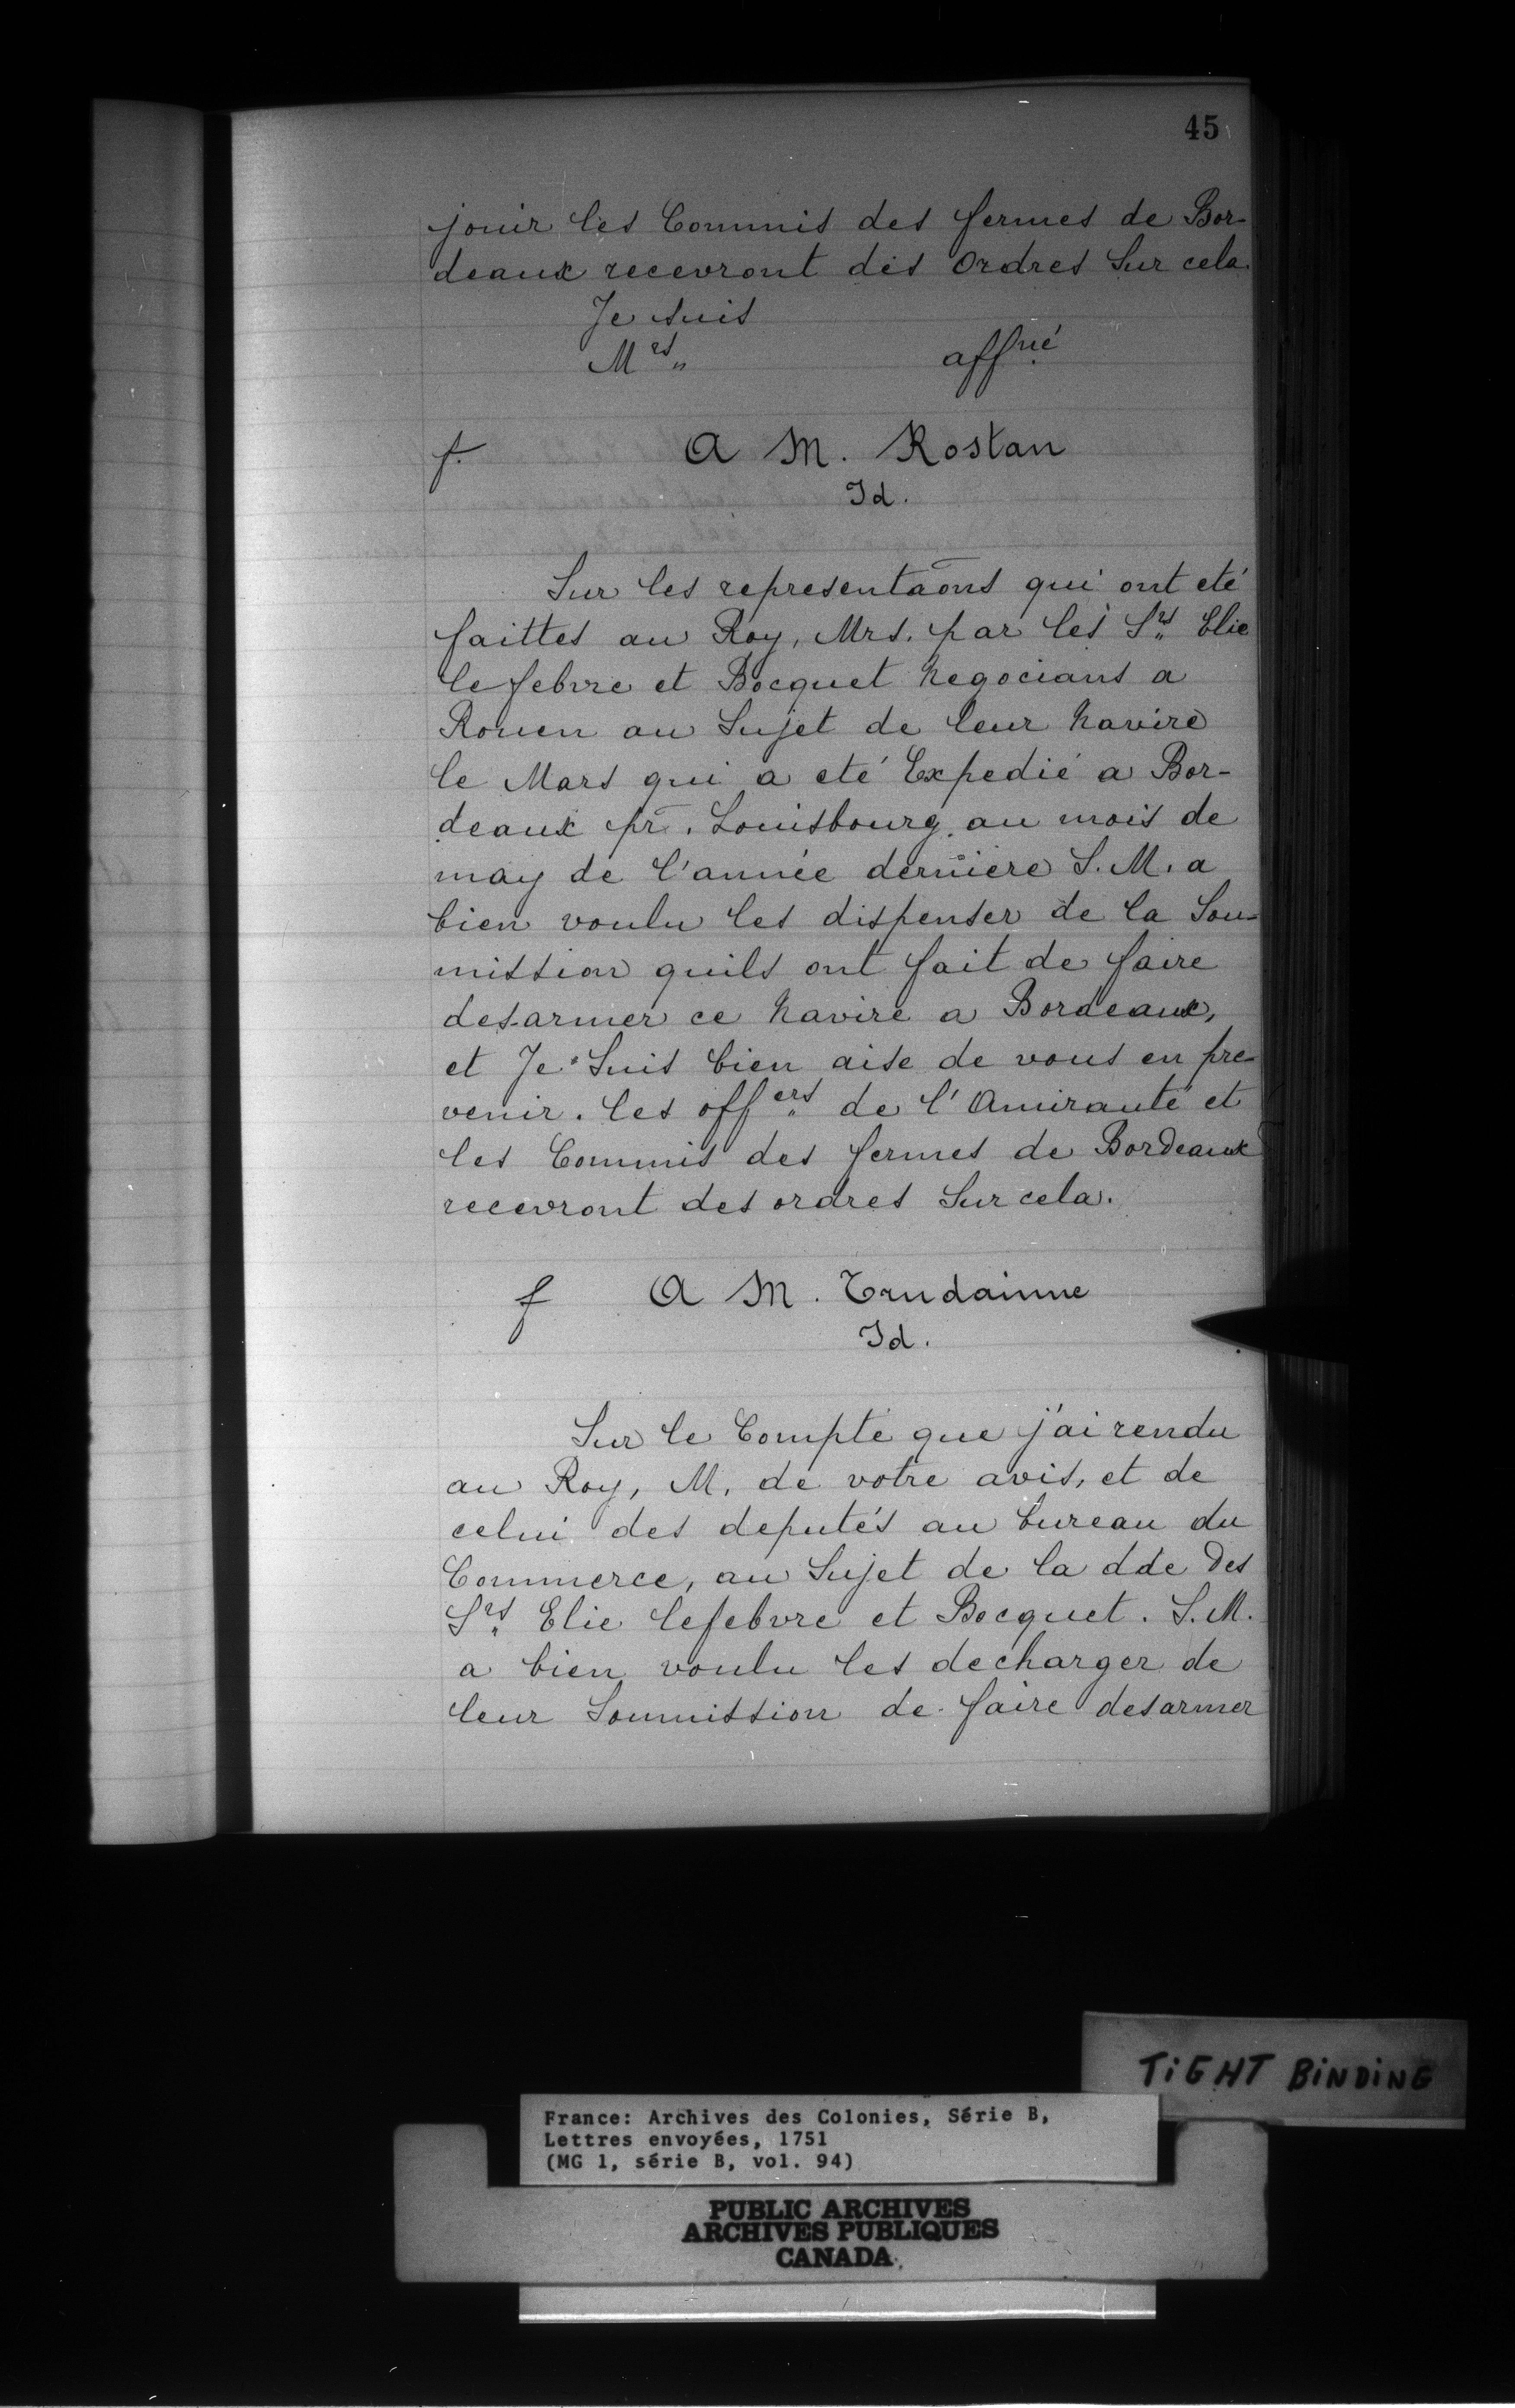 45
jouir les Commis des fermes de Bor-
deaux recevront des Ordres Sur cela.
Je suis
Mrs„ affné
f. A M. Rostan
Id.
Sur les representaons qui ont eté
faittes au Roy, Mrs. par les Srs Elie
lefebvre et Bocquet Negocians a
Rouen au Sujet de leur Navire
le Mars qui a eté Expedié a Bor-
deaux pr. Louisbourg au mois de
may de l'année derniere S. M. a
bien voulu les dispenser de la Sou-
mission quils ont fait de faire
desarmer ce Navire a Bordeaux,
et Je Suis bien aise de vous en pre-
venir. les offers de l'Amirauté et
les Commis des fermes de Bordeaux
recevront des ordres Sur cela.
f A M. Trudainne
Id.
Sur le Compte que j'ai rendu
au Roy, M. de votre avis, et de
celui des deputés au bureau du
Commerce, au Sujet de la dde des
Srs Elie lefebvre et Bocquet. S. M.
a bien voulu les decharger de
leur Soumission de faire desarmer
TIGHT BINDING
France: Archives des Colonies, Série B,
Lettres envoyées, 1751
(MG 1, série B, vol. 94)
PUBLIC ARCHIVES
ARCHIVES PUBLIQUES
CANADA